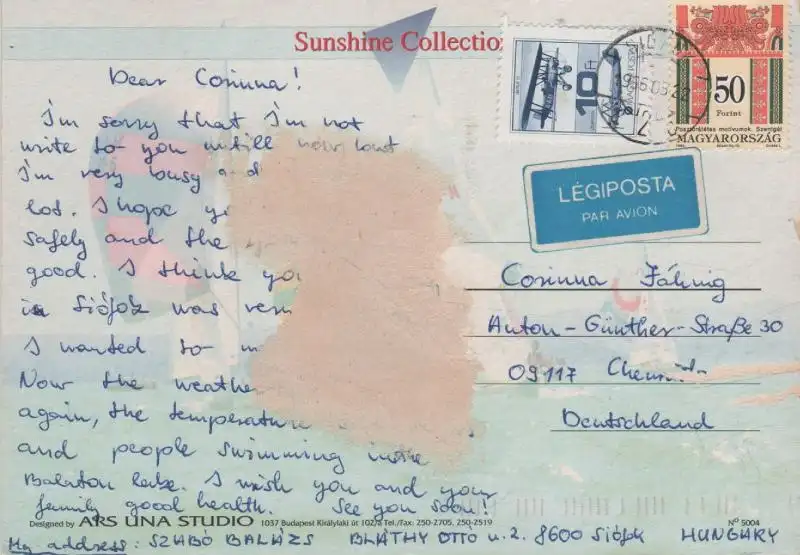 Sunshine Collectio
Dear Corinna!
I'm sorry that I'm not
write to you untill now but
I'm very busy and
lot. I hope yo
safely and the
good. I think yo
in Siófok was very
I wanted to
Now the weathe
again, the temperature
and people swimming in the
Balaton lake. I wish you and your
family good health. See you soon!
Designed by ARS UNA STUDIO 1037 Budapest Királylaki út 102/a Tel./Fax: 250-2705, 250-2519
Nº 5004
My address: SZABÓ BALÁZS BLÁTHY OTTO u. 2. 8600 Siófok HUNGARY
10 Ft
MAGYAR POSTA
50
Forint
MAGYARORSZÁG
LÉGIPOSTA
PAR AVION
Corinna Fähnig
Anton-Günther-Straße 30
09117 Chemnitz
Deutschland